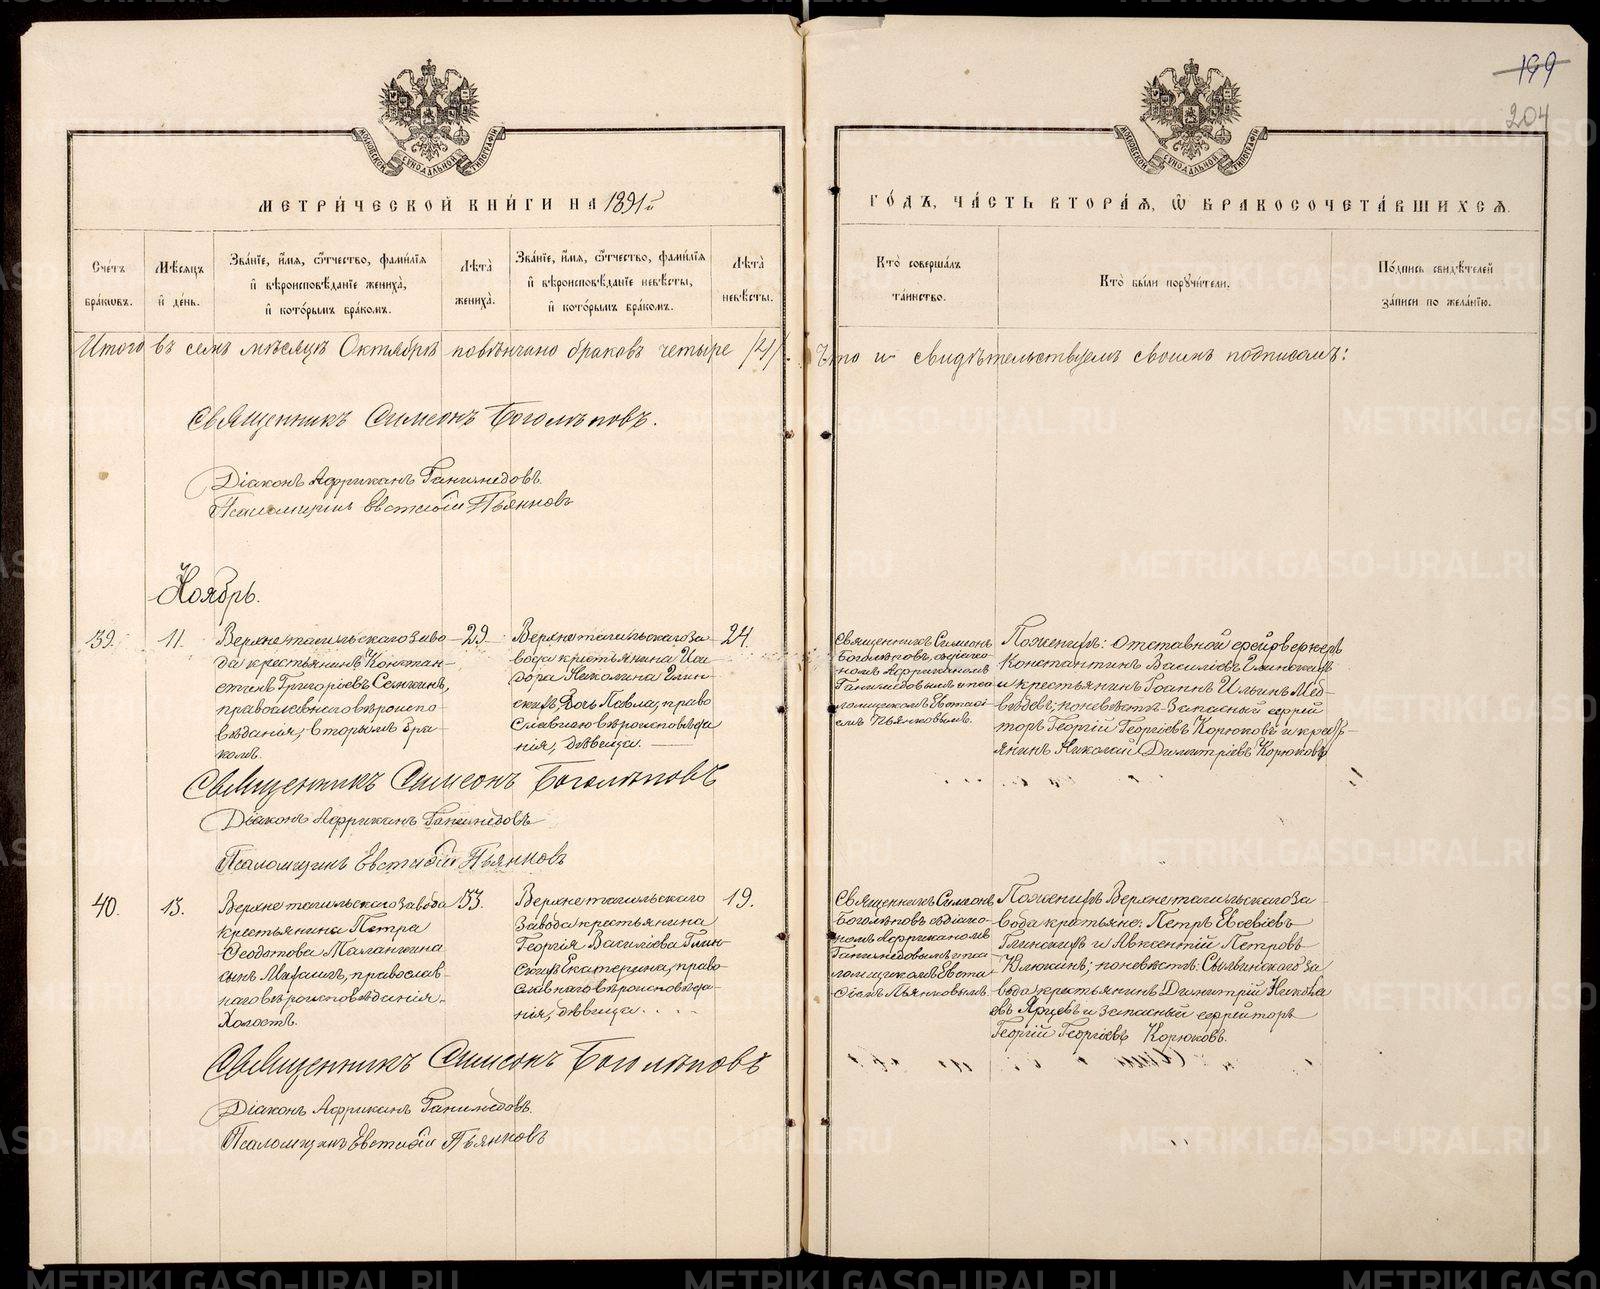 199
204
МОСКОВСКОЙ СѴНОДАЛЬНОЙ ТИПОГРАФІИ
МОСКОВСКОЙ СѴНОДАЛЬНОЙ ТИПОГРАФІИ
МЕТРИ́ЧЕСКОЙ КНИ́ГИ НА 1891й
ГО́ДЪ, ЧА́СТЬ ВТОРА́Ѧ, Ѽ БРАКОСОЧЕТА́ВШИХСѦ.
Сче́тъ бра́ковъ.
Мѣ́сяцъ и҆ де́нь.
Зва́нїе, и҆́мя, ѻ҆́тчество, фами́лїя и҆ вѣроисповѣ́данїе жениха̀, и҆ кото́рымъ бра́комъ.
Лѣ́та жениха̀.
Зва́нїе, и҆́мя, ѻ҆́тчество, фами́лїя и҆ вѣроисповѣ́данїе невѣ́сты, и҆ кото́рымъ бра́комъ.
Лѣ́та невѣ́сты.
Кто̀ соверша́лъ та́инство.
Кто̀ бы́ли порꙋчи́тели.
По́дпись свидѣ́телей за́писи по жела́нїю.
Итого въ семъ мѣсяцѣ Октябрѣ повѣнчано браковъ четыре /4/. Что и свидѣтельствуемъ своимъ подписомъ:
Священникъ Симеонъ Боголѣповъ.
Діаконъ Африканъ Ганимедовъ.
Псаломщикъ Евстафій Пьянковъ
Ноябрь.
39.
11.
Верхнетагильскаго заво-
да крестьянинъ Констан-
тинъ Григоріевъ Семкинъ,
православнаго вѣроиспо-
вѣданія, вторымъ бра-
комъ.
29.
Верхнетагильскаго за-
вода крестьянина Иси-
дора Николина Глин-
скихъ дочь Павла, право
славнаго вѣроисповѣда
нія, дѣвица.
24.
Священникъ Симеонъ
Боголѣповъ съ діако-
номъ Африканомъ
Ганимедовымъ и пса
ломщикомъ Евстафі
емъ Пьянковымъ.
По женихѣ: отставной фейерверкеръ
Константинъ Василіевъ Глинскихъ
и крестьянинъ Іоаннъ Ильинъ Мед-
вѣдевъ; по невѣстѣ: Запасный ефрей
торъ Георгій Георгіевъ Корюковъ и кресть-
янинъ Николай Димитріевъ Корюковъ
Священникъ Симеонъ Боголѣповъ
Діаконъ Африканъ Ганимедовъ
Псаломщикъ Евстафій Пьянковъ
40.
13.
Верхнетагильскаго завода
крестьянина Петра
Ѳеодотова Маланина
сынъ Михаилъ, православ-
наго вѣроисповѣданія.
Холостъ.
33.
Верхнетагильскаго
завода крестьянина
Георгія Василіева Глин-
скихъ Екатерина, право-
славнаго вѣроисповѣда-
нія, дѣвица.
19.
Священникъ Симеонъ
Боголѣповъ съ діако-
номъ Африканомъ
Ганимедовымъ и пса
ломщикомъ Евста
фіемъ Пьянковымъ.
По женихѣ Верхнетагильскаго за-
вода крестьяне: Петръ Евсевіевъ
Глинскихъ и Авксентій Петровъ
Клюкинъ; по невѣстѣ: Сылвинскаго за
вода крестьянинъ Димитрій Никола
евъ Ярцевъ и запасный ефрейторъ
Георгій Георгіевъ Корюковъ.
Священникъ Симеонъ Боголѣповъ
Діаконъ Африканъ Ганимедовъ.
Псаломщикъ Евстафій Пьянковъ
METRIKI.GASO-URAL.RU